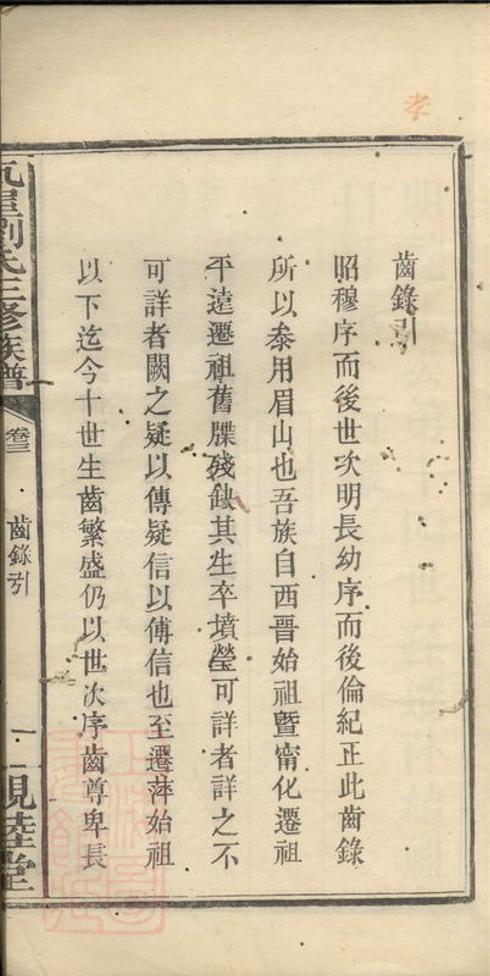 孝
齒錄引
昭穆序而後世次明長幼序而後倫紀正此齒錄
所以叅用眉山也吾族自西晉始祖曁甯化遷祖
平遠遷祖舊牒殘缺其生卒墳塋可詳者詳之不
可詳者闕之疑以傳疑信以傳信也至遷萍始祖
以下迄今十世生齒繁盛仍以世次序齒尊卑長
劉氏三修族譜
卷三
齒錄引
一
親睦堂